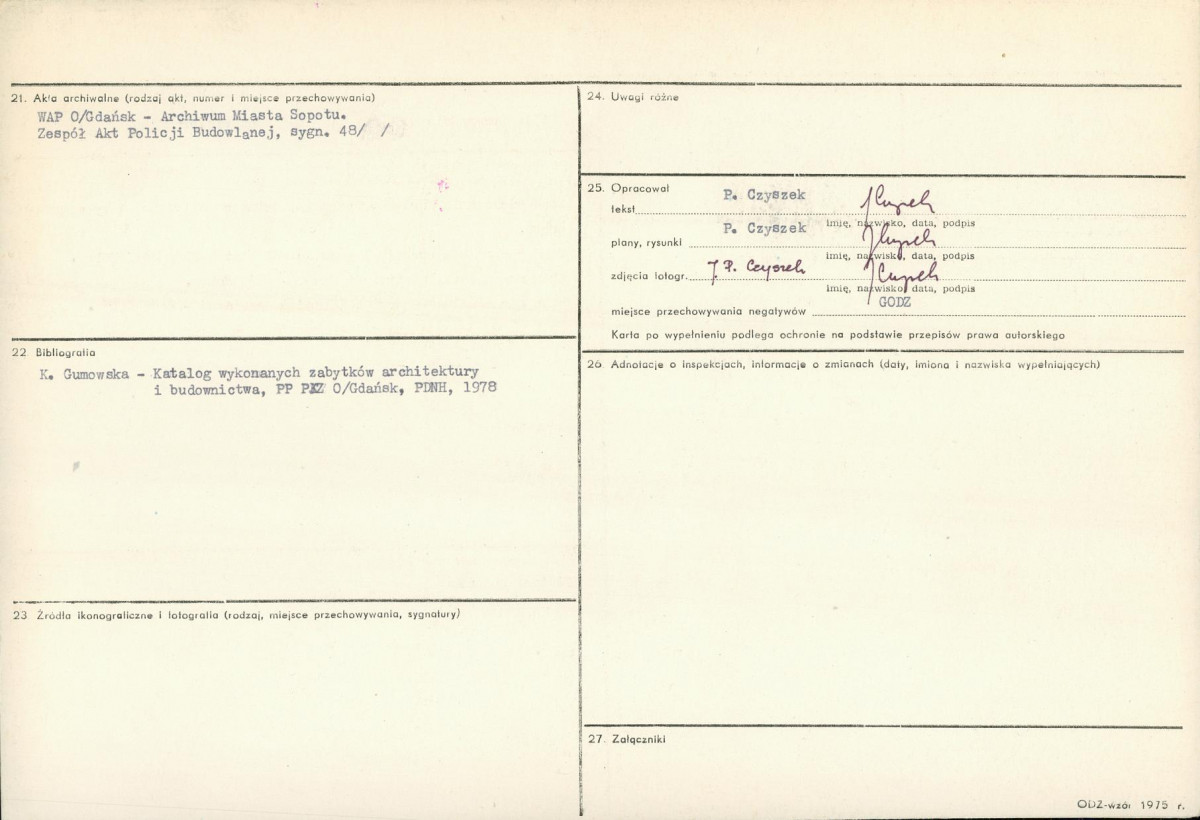 21. Akta archiwalne (rodzaj akt, numer i miejsce przechowywania)
WAP O/Gdańsk - Archiwum Miasta Sopotu.
Zespół Akt Policji Budowlanej, sygn. 48/ /
22 Bibliografia
K. Gumowska - Katalog wykonanych zabytków architektury
i budownictwa, PP PKZ O/Gdańsk, PDNH, 1978
23 Źródła ikonograficzne i fotografia (rodzaj, miejsce przechowywania, sygnatury)
24. Uwagi różne
25. Opracował
tekst P. Czyszek
imię, nazwisko, data, podpis
plany, rysunki P. Czyszek
imię, nazwisko, data, podpis
zdjęcia fotogr. J. P. Czyszek
imię, nazwisko, data, podpis
miejsce przechowywania negatywów GODZ
Karta po wypełnieniu podlega ochronie na podstawie przepisów prawa autorskiego
26. Adnotacje o inspekcjach, informacje o zmianach (daty, imiona i nazwiska wypełniających)
27. Załączniki
ODZ-wzór 1975 r.